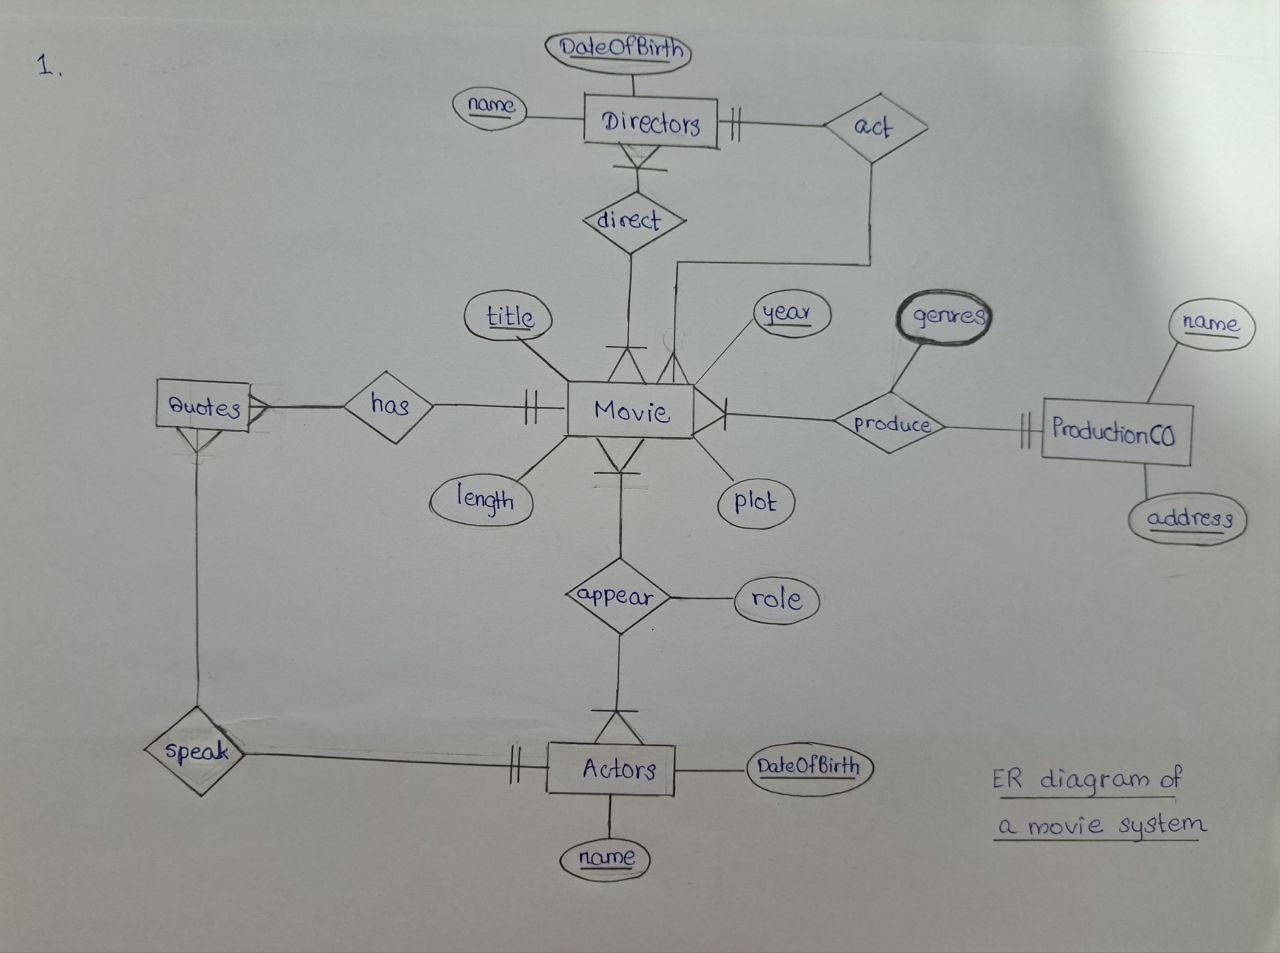 1.
DateOfBirth
name
Directors
act
direct
title
year
genres
name
Quotes
has
Movie
produce
ProductionCO
length
plot
address
appear
role
speak
Actors
DateOfBirth
name
ER diagram of
a movie system